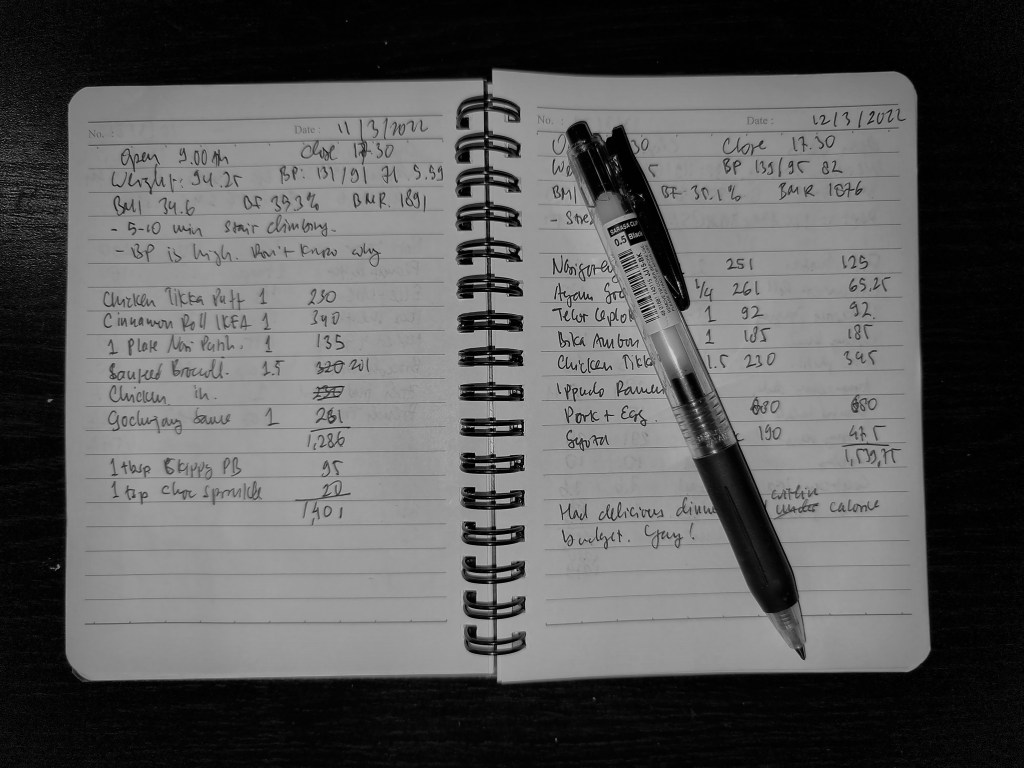 No. : Date : 11/3/2022
Open 9.00 am Close 17.30
Weight: 94.25 BP: 131/91 71 5.59
BMI 34.6 BF 35.3% BMR 1891
- 5-10 min stair climbing.
- BP is high. Don't know why
Chicken Tikka Puff 1 230
Cinnamon Roll IKEA 1 340
1 Plate Nasi Putih. 1 135
Sauteed Broccoli. 1.5 320 201
Chicken in.
Gochujang Sauce 1 261
1,286
1 tbsp Skippy PB 95
1 tsp Choc Sprinkle 20
1,401
No. : Date : 12/3/2022
30 Close 17.30
5 BP 139/95 82
BMI BF 35.1% BMR 1876
251 125
Ayam 1/4 261 65.25
Telur Ceplok 1 92 92.
Bika Ambon 1 185 185
Chicken Tikka 1.5 230 345
Ippudo Ramen
Pork + Egg 680 680
Gyoza 190 47.5
1,539,75
Had delicious under within calorie
budget. Yay!
SARASA CLIP
0.5 Black